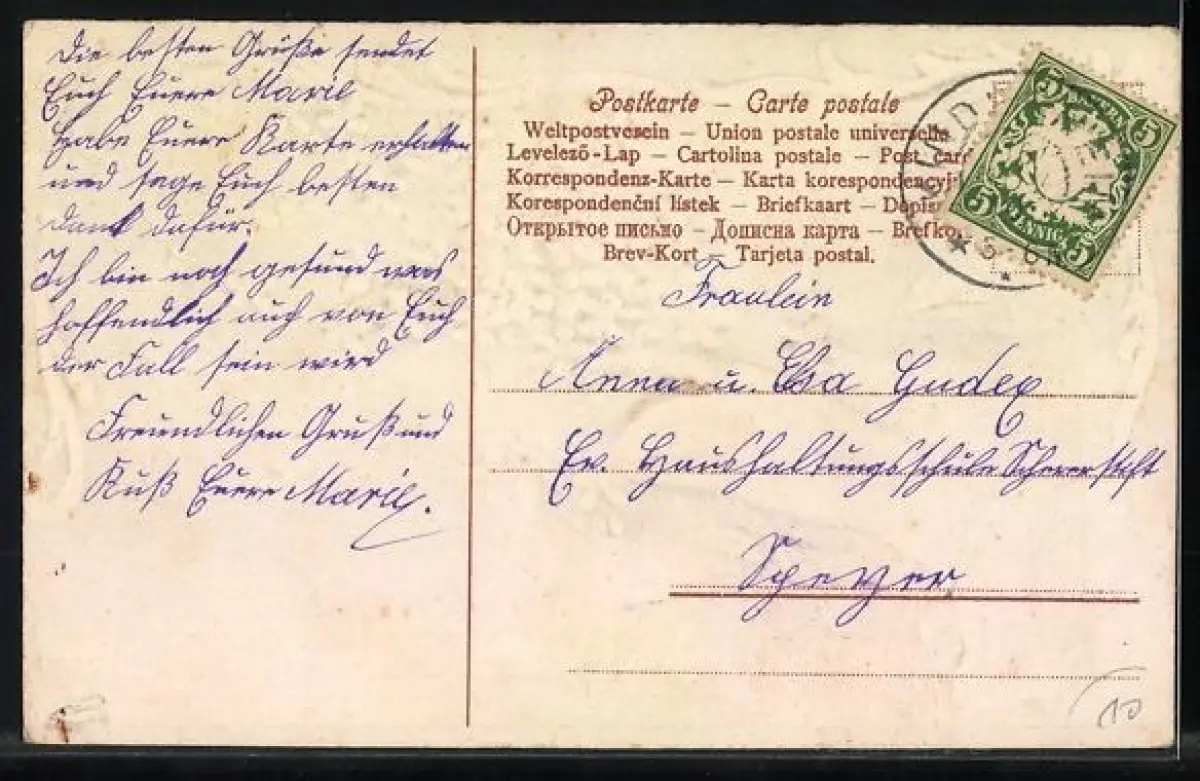 Die besten Grüße sendet
Euch Euere Marie
habe Euere Karte erhalten
und sage Euch besten
dank dafür.
Ich bin noch gesund was
hoffendlich auch von Euch
der Fall sein wird
Freundlichen Gruß und
Kuß Euere Marie.
Postkarte – Carte postale
Weltpostverein – Union postale universelle
Levelező-Lap – Cartolina postale – Post card
Korrespondenz-Karte – Karta korespondencyj
Korespondenční lístek – Briefkaart – Dopis
Открытое письмо – Дописна карта – Brefko
Brev-Kort – Tarjeta postal.
5 5
5 PFENNIG 5
5-6N
Fräulein
Anna u. Elsa
Ev. Haushaltungsschule
Speyer
10